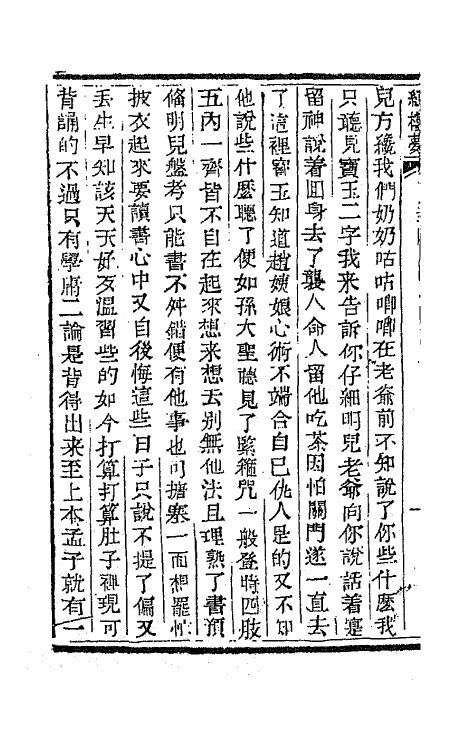 紅樓夢
兒方纔我們奶奶咕咕唧唧在老爺前不知說了你些什麽我
只聽見寶玉二字我来告訴你仔細明兒老爺向你說話着寔
留神說着囬身去了襲人命人留他吃茶因怕關門遂一直去
了這裡寳玉知道趙姨娘心術不端合自已仇人是的又不知
他說些什麽聽了便如孫大聖聽見了緊箍咒一般登時四肢
五内一齊皆不自在起來想来想去别無他法且理熟了書預
偹明兒盤考只能書不舛錯便有他事也可搪塞一面想罷忙
披衣起來要讀書心中又自後悔這些日子只說不提了偏又
丢生早知該天天好歹溫習些的如今打算打算肚子裡現可
背誦的不過只有學庸二論是背得出来至上本孟子就有一